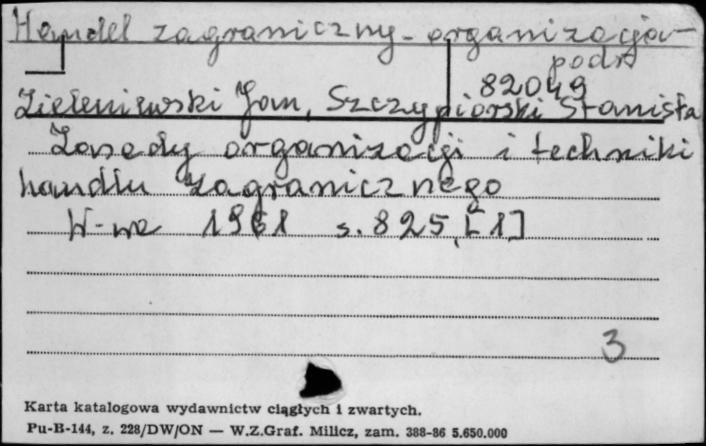 Handel zagraniczny - organizacja
podr
82049
Zieleniewski Jan, Szczypiorski Stanisła
Zasady organizacji i techniki
handlu zagranicznego
W-wa 1961 s. 825, [1]
3
Karta katalogowa wydawnictw ciągłych i zwartych.
Pu-B-144, z. 228/DW/ON — W.Z.Graf. Milicz, zam. 388-86 5.650.000